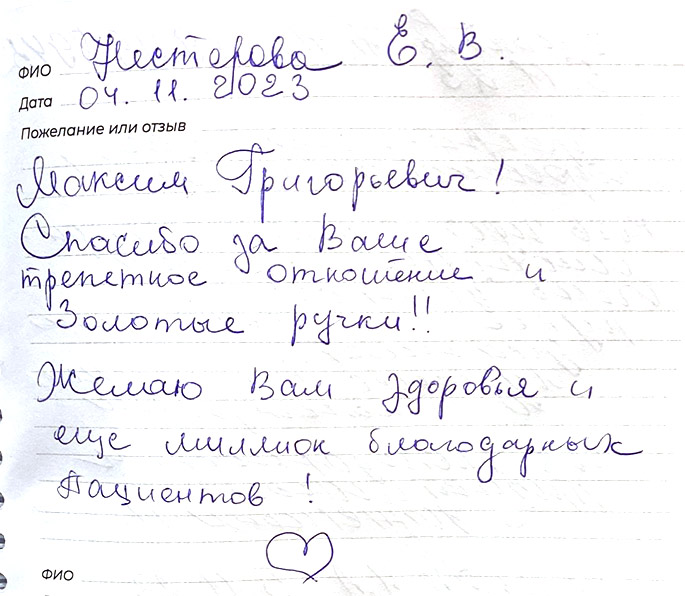 ФИО Нестерова Е. В.
Дата 04. 11. 2023
Пожелание или отзыв
Максим Григорьевич!
Спасибо за Ваше
трепетное отношение и
Золотые ручки!!
Желаю Вам здоровья и
еще миллион благодарных
пациентов!
ФИО